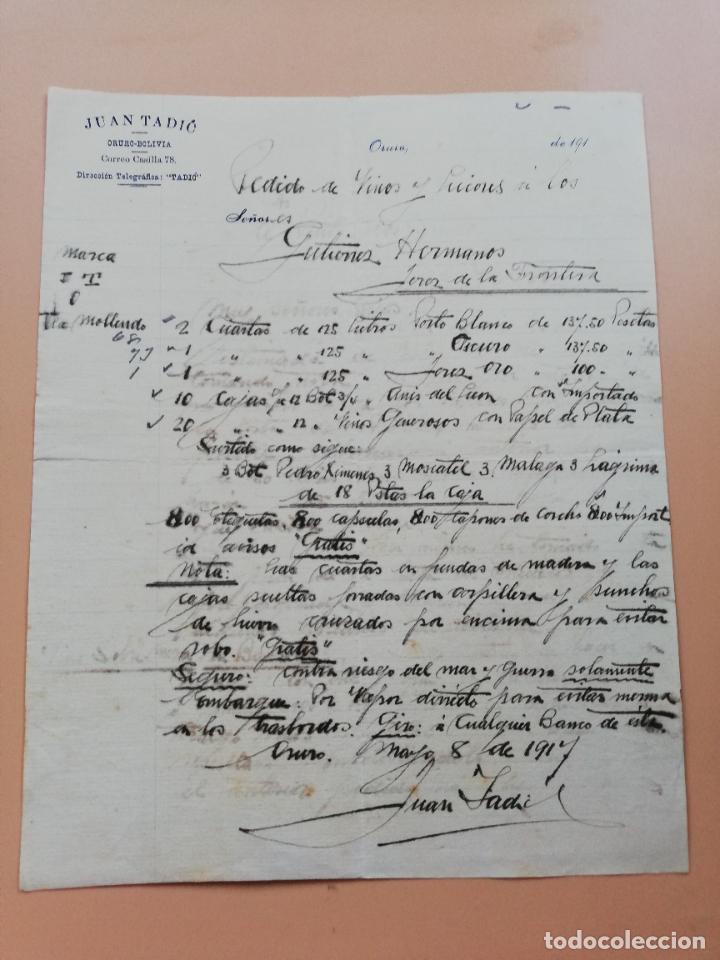 JUAN TADIĆ
ORURO-BOLIVIA
Correo Casilla 78.
Dirección Telegráfica: "TADIĆ"
Oruro, de 191
Pedido de Vinos y Licores á los
Señores
Gutierrez Hermanos
Jerez de la Frontera
Marca
T
O
Via Mollendo
68
77
1
2 Cuartas de 125 Litros Porto Blanco de 137.50 Pesetas
1 " " 125 " " Oscuro " 137.50 "
1 " " 125 " Jerez Oro " 100 - "
10 Cajas 12 Bot Anis del Leon con Importado
20 " " 12 " Vinos Generosos con Papel de Plata
Surtido como sigue:
3 Bot Pedro Ximenes 3 Moscatel 3 Malaga 3 Lagrima
de 18 Ptas la Caja
800 Etiquetas, 800 capsulas, 800 tapones de corcho 800 Import
avisos "Gratis"
Nota: Las cuartas en fundas de madera y las
cajas sueltas forradas con arpillera y
de hierro cruzados por encima para evitar
robo. "Gratis"
Seguro: contra riesgo del mar y Guerra solamente
Embarque: Por Vapor directo para evitar merma
en los trasbordos. Giro: á Cualquier Banco de ésta.
Oruro. Mayo 8 de 1917
Juan Tadić
todocoleccion
todocoleccion.net